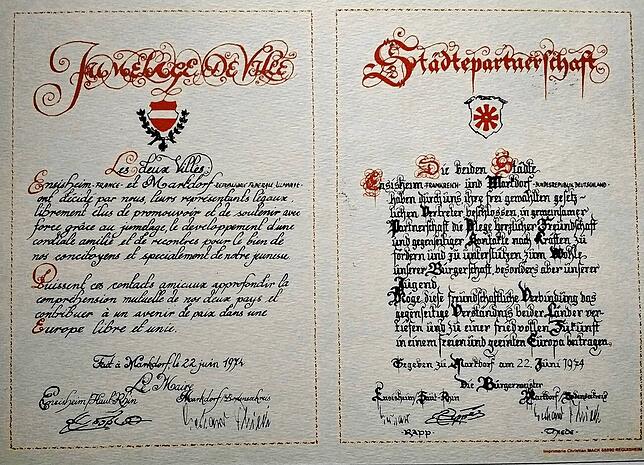 Jumelage de Ville
Les deux Villes
Ensisheim - FRANCE - et Markdorf
ont décidé par nous, leurs représentants légaux
librement élus de promouvoir et de soutenir avec
force grâce au jumelage, le développement d'une
cordiale amitié et de recontres pour le bien de
nos concitoyens et specialement de notre jeunesse.
Puissent ces contacts amicaux approfondir la
compréhension mutuelle de nos deux pays et
contribuer à un avenir de paix dans une
Europe libre et unie.
Fait à Markdorf, le 22 juin 1974
Le Maire
Ensisheim/Haut-Rhin Markdorf/Bodenseekreis
Städtepartnerschaft
Die beiden Städte
Ensisheim - FRANKREICH - und Markdorf - BUNDESREPUBLIK DEUTSCHLAND -
haben durch uns ihre frei gewählten gesetz-
lichen Vertreter beschlossen, in gemeinsamer
Partnerschaft die Pflege herzlicher Freundschaft
und gegenseitiger Kontakte nach Kräften zu
fördern und zu unterstützen zum Wohle
unserer Bürgerschaft besonders aber unserer
Jugend.
Möge diese freundschaftliche Verbindung das
gegenseitige Verständnis beider Länder ver-
tiefen und zu einer friedvollen Zukunft
in einem freien und geeinten Europa beitragen.
Gegeben zu Markdorf am 22. Juni 1974
Die Bürgermeister
Ensisheim/Haut-Rhin Markdorf/Bodenseekreis
- Rapp - - Thede -
Imprimerie Christian MACK 68890 REGUISHEIM